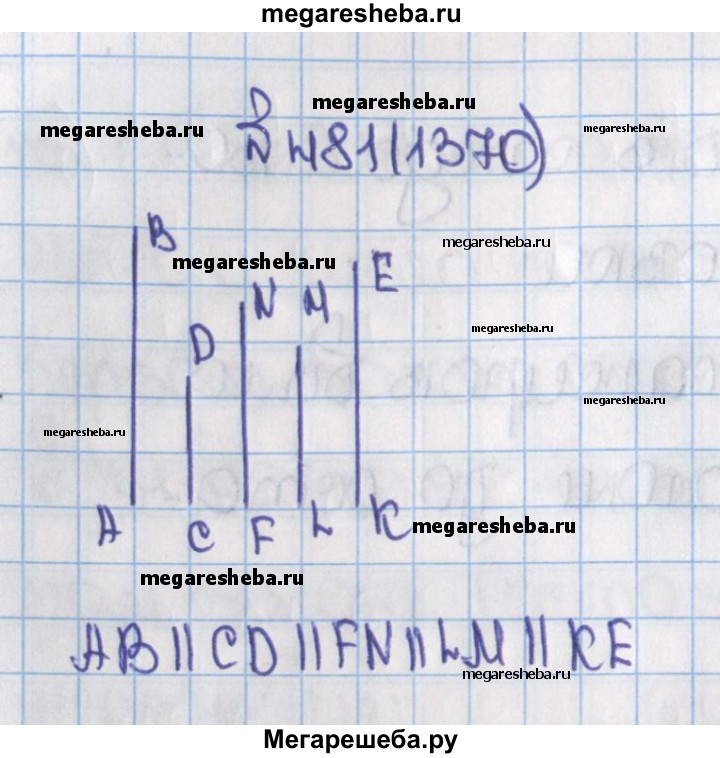 megaresheba.ru
megaresheba.ru
megaresheba.ru
megaresheba.ru
№ 481(1370)
B
megaresheba.ru
megaresheba.ru
E
N
M
D
megaresheba.ru
megaresheba.ru
megaresheba.ru
A
C
F
L
K
megaresheba.ru
megaresheba.ru
AB || CD || FN || LM || KE
megaresheba.ru
Мегарешеба.ру